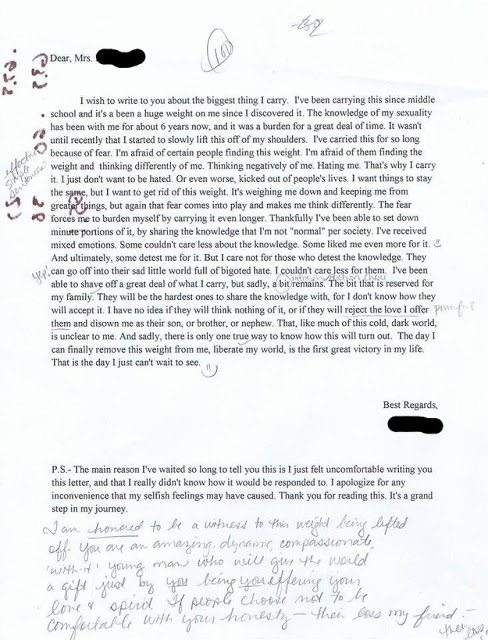 100
Dear, Mrs.
I wish to write to you about the biggest thing I carry. I've been carrying this since middle
school and it's a been a huge weight on me since I discovered it. The knowledge of my sexuality
has been with me for about 6 years now, and it was a burden for a great deal of time. It wasn't
until recently that I started to slowly lift this off of my shoulders. I've carried this for so long
because of fear. I'm afraid of certain people finding this weight. I'm afraid of them finding the
weight and thinking differently of me. Thinking negatively of me. Hating me. That's why I carry
it. I just don't want to be hated. Or even worse, kicked out of people's lives. I want things to stay
the same, but I want to get rid of this weight. It's weighing me down and keeping me from
greater things, but again that fear comes into play and makes me think differently. The fear
forces me to burden myself by carrying it even longer. Thankfully I've been able to set down
minute portions of it, by sharing the knowledge that I'm not "normal" per society. I've received
mixed emotions. Some couldn't care less about the knowledge. Some liked me even more for it.
And ultimately, some detest me for it. But I care not for those who detest the knowledge. They
yep!
can go off into their sad little world full of bigoted hate. I couldn't care less for them. I've been
able to shave off a great deal of what I carry, but sadly, a bit remains. The bit that is reserved for
my family. They will be the hardest ones to share the knowledge with, for I don't know how they
will accept it. I have no idea if they will think nothing of it, or if they will reject the love I offer
powerful
them and disown me as their son, or brother, or nephew. That, like much of this cold, dark world,
is unclear to me. And sadly, there is only one true way to know how this will turn out. The day I
can finally remove this weight from me, liberate my world, is the first great victory in my life.
That is the day I just can't wait to see.
Best Regards,
P.S.- The main reason I've waited so long to tell you this is I just felt uncomfortable writing you
this letter, and that I really didn't know how it would be responded to. I apologize for any
inconvenience that my selfish feelings may have caused. Thank you for reading this. It's a grand
step in my journey.
I am honored to be a witness to this weight being lifted
off. You are an amazing, dynamic, compassionate,
"with-it" young man who will give the world
a gift just by you being you offering your
love & spirit. If people choose not to be
comfortable with your honesty — their loss my friend. —